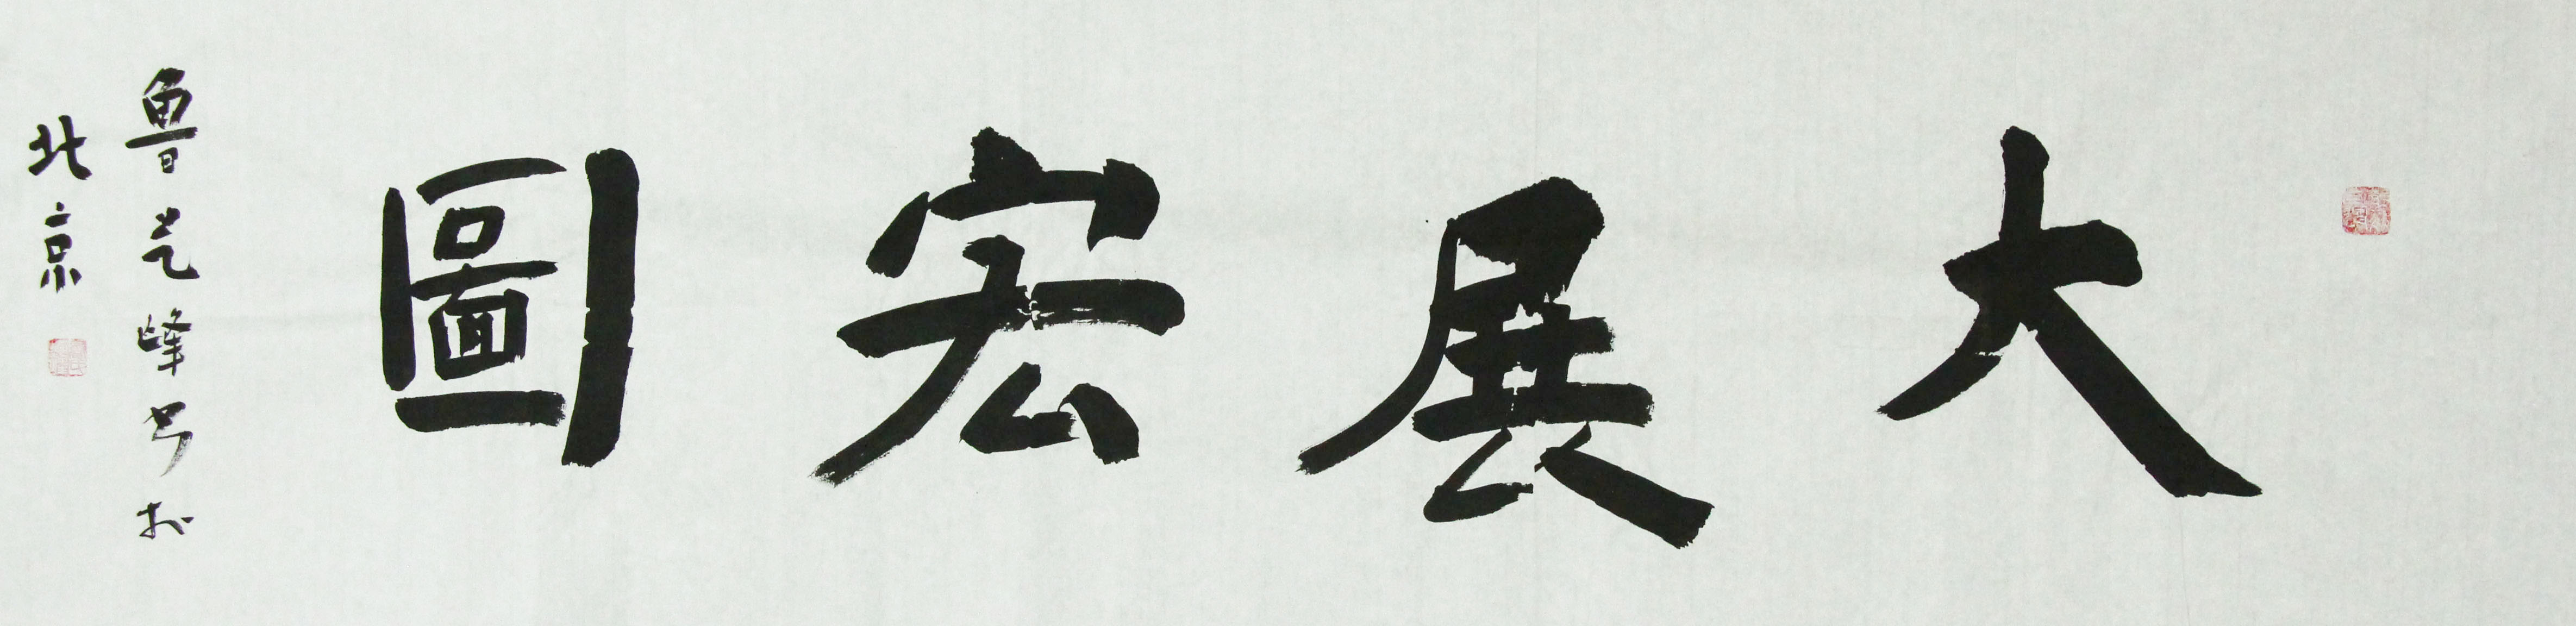 大展宏圖
魯艺峰书於
北京